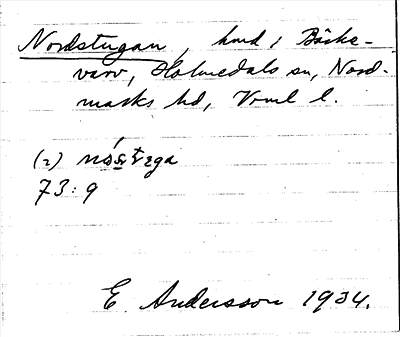 Nordstugan, hmd i Bäcks-
varv, Holmedals sn, Nord-
marks hd, Vrml l.
(2)
73:9
E. Andersson 1934.